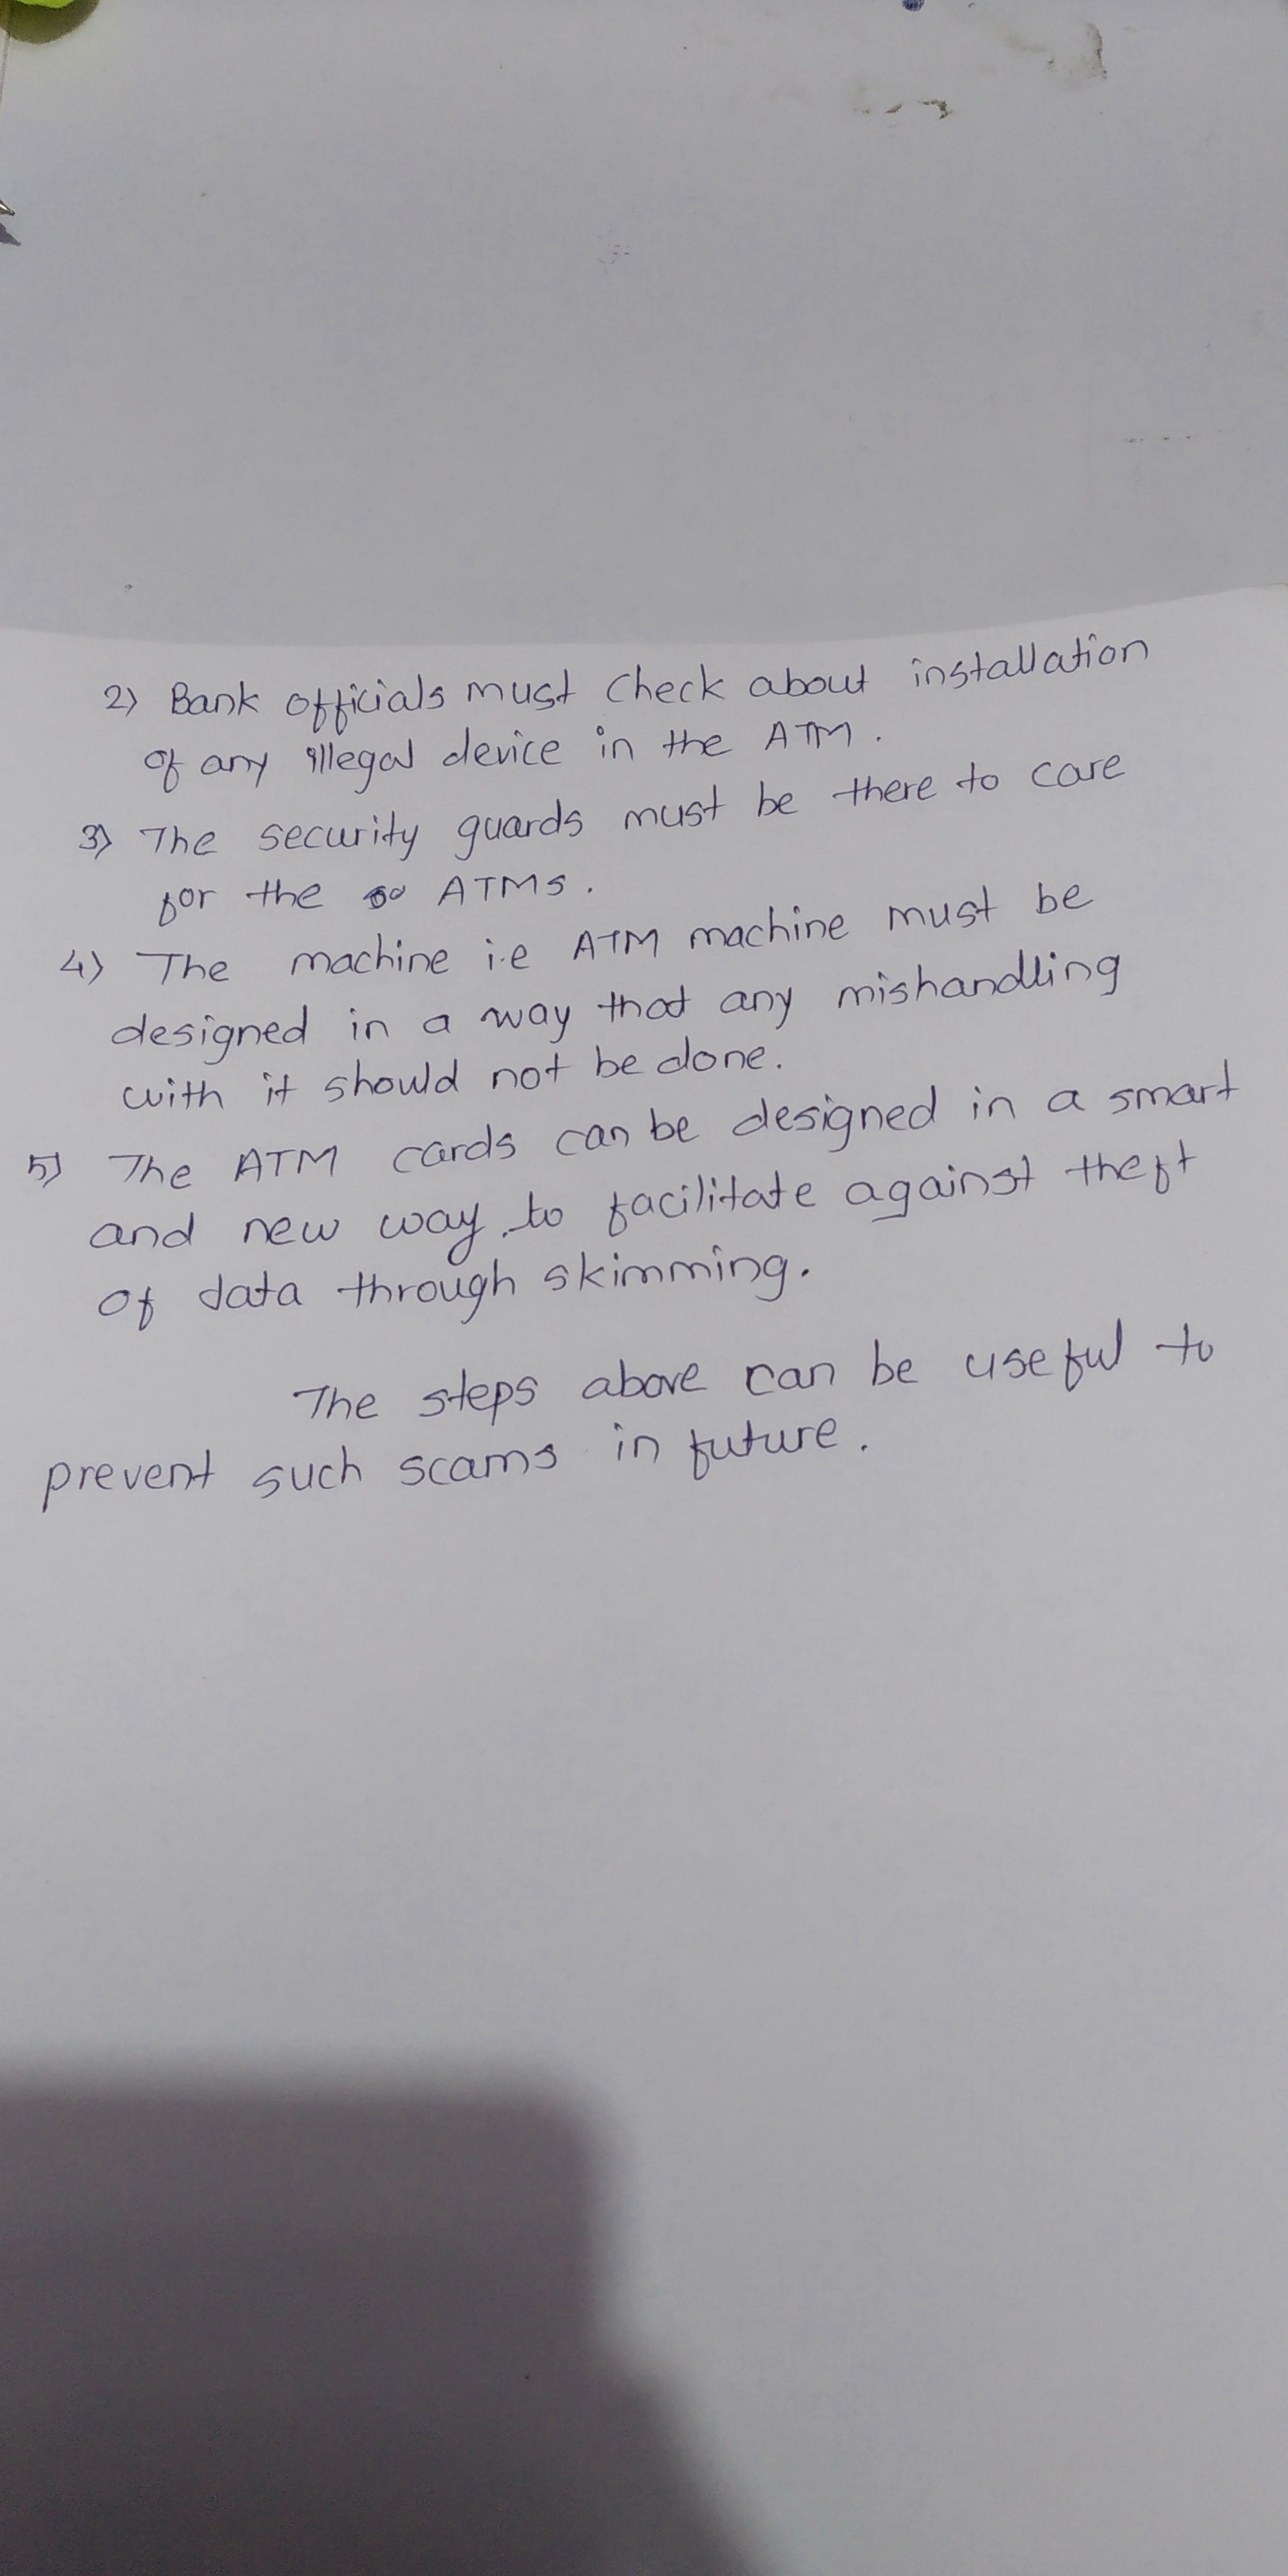 2) Bank officials must check about installation
of any illegal device in the ATM.
3) The security guards must be there to care
for the ATMs.
4) The machine i.e ATM machine must be
designed in a way that any mishandling
with it should not be done.
5) The ATM cards can be designed in a smart
and new way, to facilitate against theft
of data through skimming.
The steps above can be useful to
prevent such scams in future.